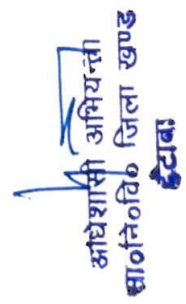 अधिशासी अभियन्ता
सा०नि०वि० जिला खण्ड
ईटावा